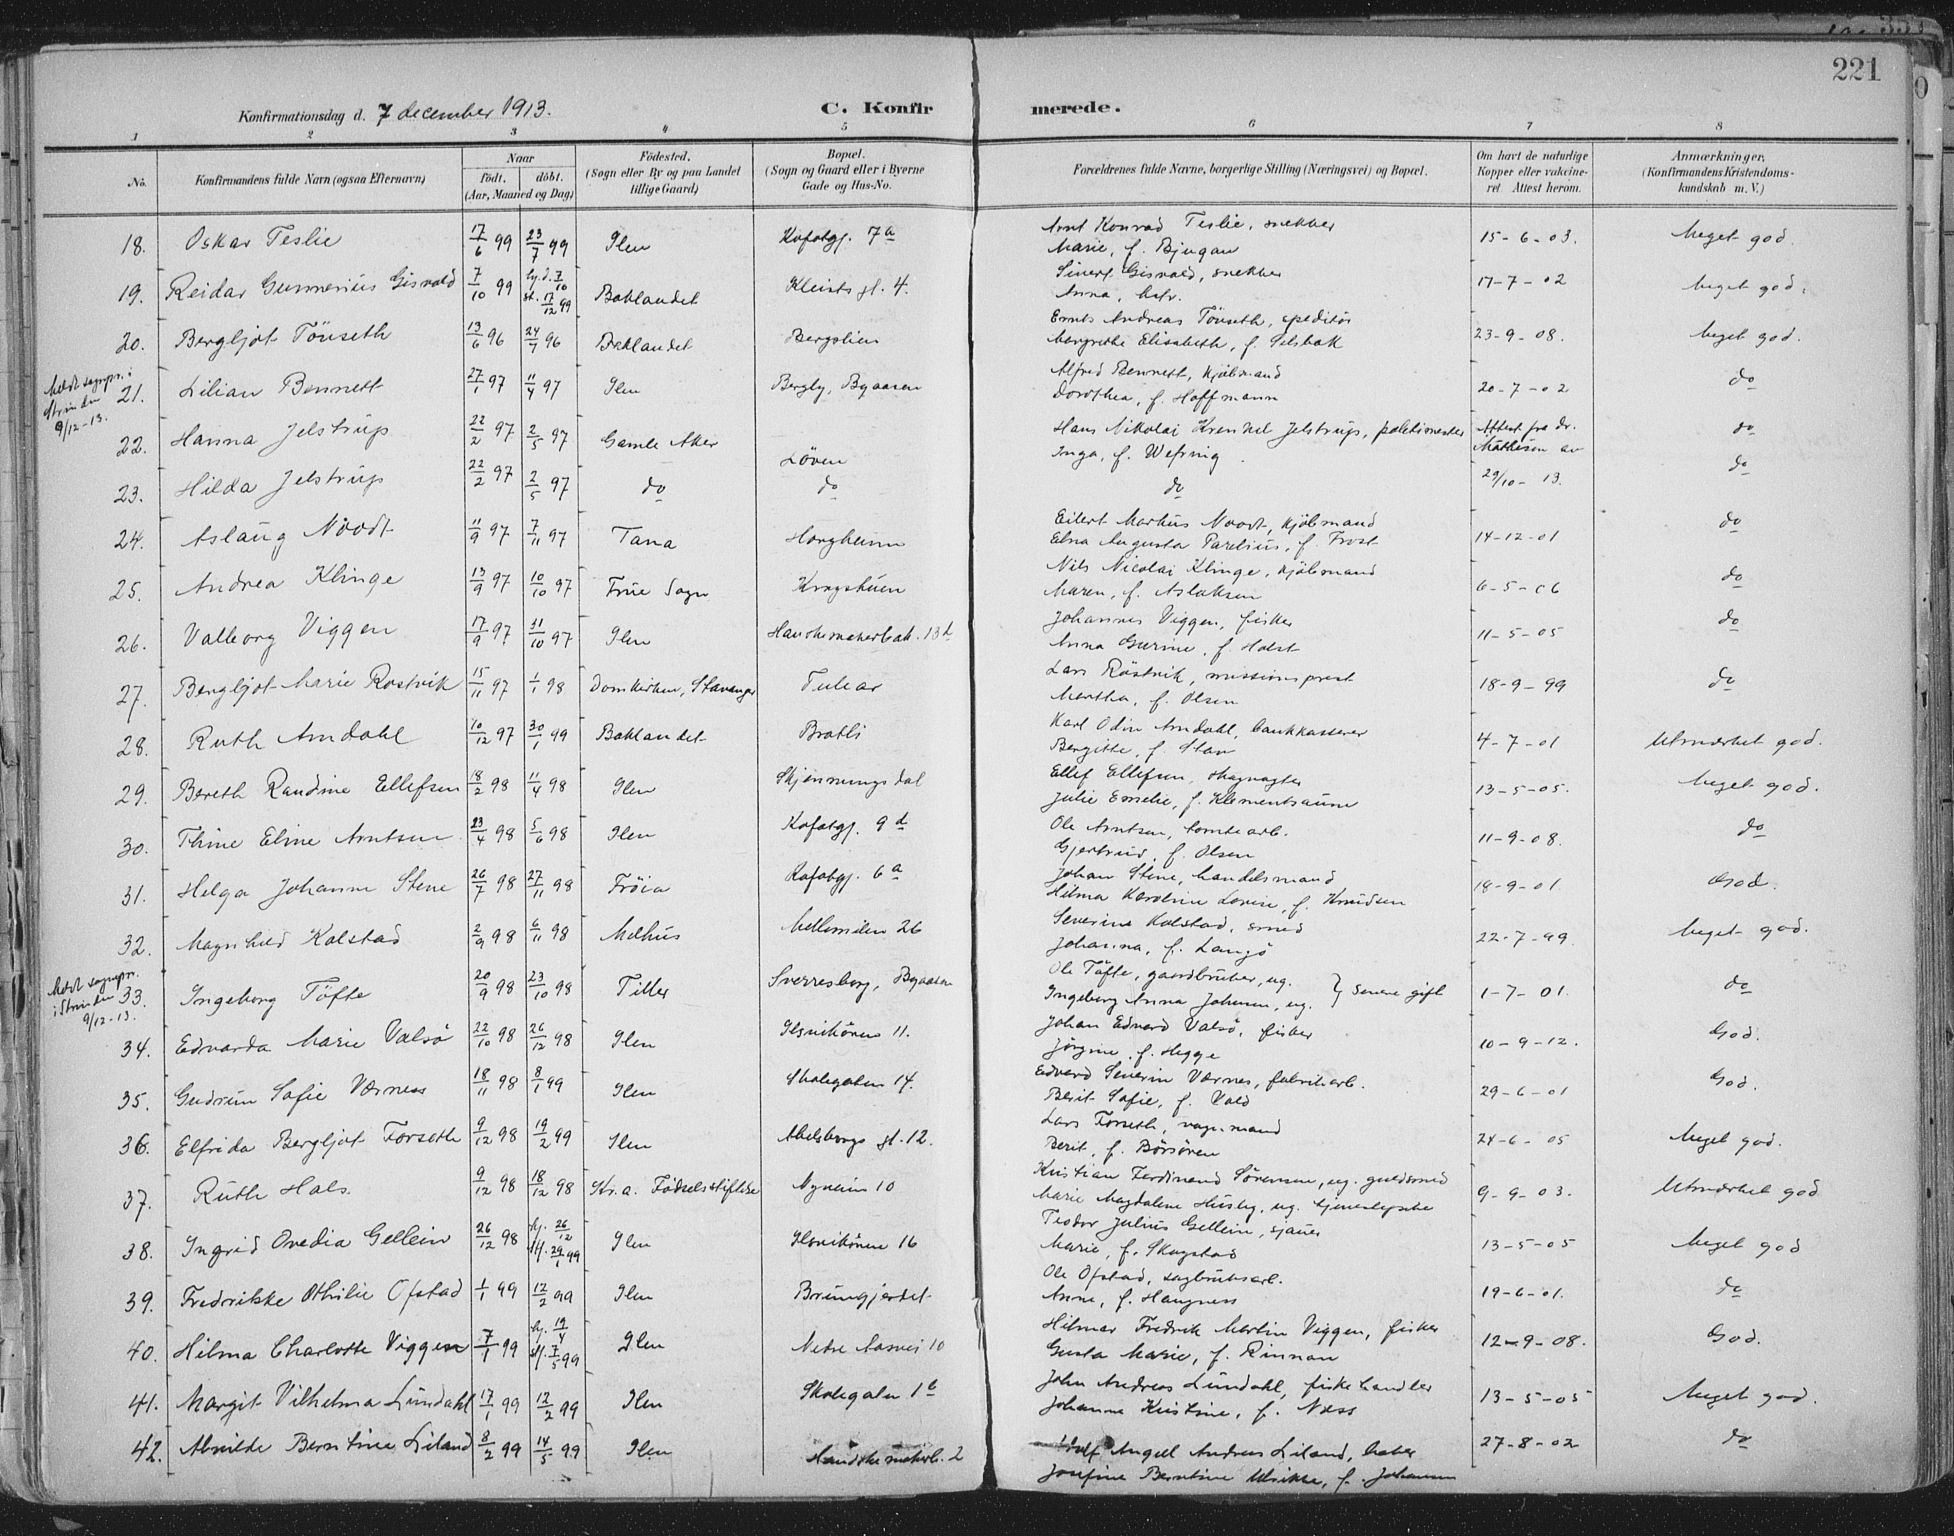 221
Konfirmationsdag d. 7 december 1913. C. Konfirmerede.
1 2 3 4 5 6 7 8
No. Konfirmandens fulde Navn (ogsaa Efternavn) Naar født. døbt. (Aar, Maaned og Dag) Fødested. (Sogn eller By og paa Landet tillige Gaard) Bopæl. (Sogn og Gaard eller i Byerne Gade og Hus-No. Forældrenes fulde Navne, borgerlige Stilling (Næringsvei) og Bopæl. Om havt de naturlige Kopper eller vakcineret. Attest herom. Anmærkninger, (Konfirmandens Kristendomskundskab m. V.)
18. Oskar Teslie 17/6 99 23/7 99 Ilen Kofotgj. 7a Arnt Konrad Teslie, snekker 15-6-03. Meget god.
Marie, f. Bjugan
19. Reidar Gunnerius Gisvold 7/10 99 hj.d. 7/10 st. 17/12 99 Baklandet Kleists gt. 4. Gisvold, snekker 17-7-02 Meget god.
Anna,
20. Bergljot Tönseth 13/6 96 24/7 96 Baklandet Bergslien Ernts Andreas Tönseth, speditör 23-9-08. Meget god.
Margrethe Elisabeth, f. Selsbak
Meldt sognepr. i Strinden 9/12-13.
21. Lilian Bennett 27/1 97 11/4 97 Ilen Bergly, Byaasen Alfred Bennett, kjöbmand 20-7-02 do
Dorothea, f. Hoffmann
22. Hanna Jelstrup 22/2 97 2/5 97 Gamle Aker Löven Hans Nikolai Krenkel Jelstrup, politimester Attest fra dr. Mathison av 29/10-13. do
Inga, f. Wefring
23. Hilda Jelstrup 22/2 97 2/5 97 do do do do
24. Aslaug Noodt 11/9 97 7/11 97 Tana Horgheim Eilert Markus Noodt, kjöbmand 14-12-01 do
Elna Augusta Parelius, f. Frost
25. Andrea Klinge 13/9 97 10/10 97 Frue Sogn Kragshuen Nils Nicolai Klinge, kjöbmand 6-5-06 do
Maren, f. Aslaksen
26. Valborg Viggen 17/9 97 31/10 97 Ilen Hanskemakerbak. 13d Johannes Viggen, fisker 11-5-05 do
Anna Gurine, f. Holst
27. Bergljot Marie Rostvik 15/11 97 1/1 98 Domkirken, Stavanger Tulear Lars Röstvik, missionsprest 18-9-99 do
Martha, f. Olsen
28. Ruth Amdahl 10/12 97 30/1 99 Baklandet Bratli Karl Odin Amdahl, bankkasserer 4-7-01 Utmærket god.
Bergitte, f. Stav
29. Bereth Randine Ellefsen 18/2 98 11/4 98 Ilen Skjönningsdal Ellef Ellefsen, skogvogter 13-5-05. Meget god.
Julie Emelie, f. Klementsaune
30. Thine Eline Arntsen 23/4 98 5/6 98 Ilen Kofotgj. 9d Ole Arntsen, tomtearb. 11-9-08. do
Gjertrud, f. Olsen
31. Helga Johanne Stene 26/7 98 27/11 98 Fröia Kofotgj. 6a Johan Stene, handelsmand 18-9-01 God.
Hilma Karoline Lovise, f. Knudsen
32. Magnhild Kolstad 2/9 98 6/11 98 Melhus Mellemilen 26 Severin Kolstad, smed 22-7-99. Meget god.
Johanna, f. Langö
Meldt sognepr. i Strinden 9/12-13.
33. Ingeborg Töfte 20/9 98 23/10 98 Tiller Sverresborg, Byaasen Ole Töfte, gaardbruker, ug. } Senere gift 1-7-01. do
Ingeborg Anna Johnsen, ug.
34. Edvarda Marie Valsö 22/10 98 26/12 98 Ilen Ilsvikören 11. Johan Edvard Valsö, fisker 10-9-12. God.
Jörgine, f. Hegge
35. Gudrun Sofie Værness 18/11 98 8/1 99 Ilen Skolegaten 14. Edvard Severin Værnes, fabrikarb. 29-6-01 God.
Berit Sofie, f. Vold
36. Elfrida Bergljot Forseth 9/12 98 19/2 99 Ilen Abelsborgs gt. 12. Lars Forseth, vognmand 24-6-05 Meget god.
Berit, f. Börsören
37. Ruth Hals 9/12 98 18/12 98 Kr.a. Födselsstiftelse Nyveien 10 Kristian Ferdinand Sörensen, ug. guldsmed 9-9-03. Utmærket god
Marie Magdalene Husby, ug. tjenestepike
38. Ingrid Ovedia Gellein 26/12 98 hj. 26/12 st. 29/1 99 Ilen Ilsvikören 16 Teodor Julius Gellein, sjauer 13-5-05 Meget god
Marie, f. Skogstad
39. Fredrikke Othilie Ofstad 1/1 99 12/2 99 Ilen Brungjerdet Ole Ofstad, sagbruksarb. 19-6-01. do
Anne, f. Haugness
40. Hilma Charlotte Viggen 7/1 99 hj. 19/4 st. 7/5 99 Ilen Nedre Aasvei 10 Hilmar Fredrik Martin Viggen, fisker 12-9-08. God.
Gusta Marie, f. Rinnan
41. Margit Vilhelma Lundahl 17/1 99 12/2 99 Ilen Skolegaten 1b John Andreas Lundahl, fiskehandler 13-5-05 Meget god.
Johanne Kristine, f. Næss
42. Alvilde Berntine Liland 8/2 99 14/5 99 Ilen Hanskemakerb. 2 Adolf Angell Andreas Liland, baker 27-8-02 do
Josefine Berntine Ulrikke, f. Johansen